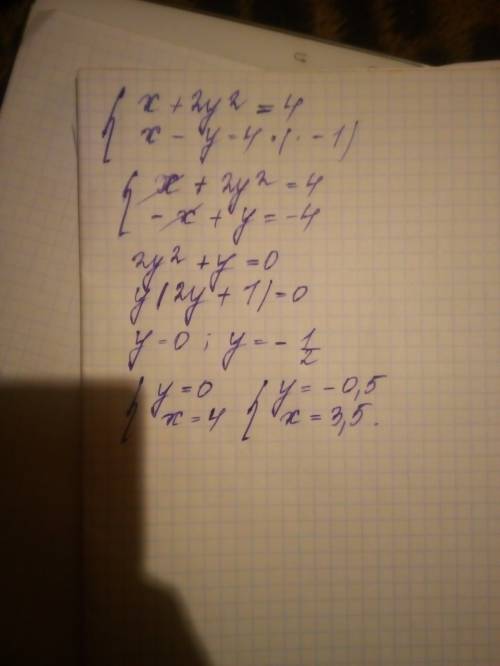 { x + 2y² = 4
x - y = 4 · (· -1)
{ x + 2y² = 4
-x + y = -4
2y² + y = 0
y(2y + 1) = 0
y = 0 ; y = - 1/2
{ y = 0 { y = -0,5
x = 4 x = 3,5.